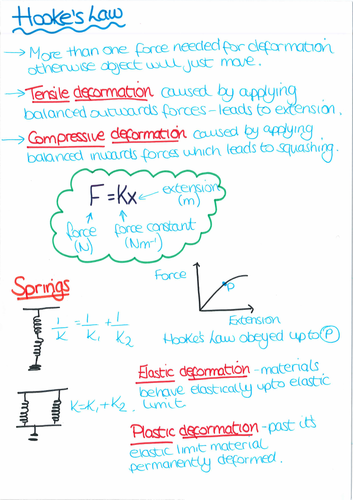 Hooke's Law
→ More than one force needed for deformation
otherwise object will just move.
→ Tensile deformation caused by applying
balanced outwards forces - leads to extension.
→ Compressive deformation caused by applying
balanced inwards forces which leads to squashing.
F = Kx
extension
(m)
force
(N)
force constant
(Nm⁻¹)
Springs
1/K = 1/K₁ + 1/K₂
K = K₁ + K₂
Force
P
Extension
Hooke's Law obeyed up to P
Elastic deformation - materials
behave elastically upto elastic
limit
Plastic deformation - past it's
elastic limit material
permanently deformed.